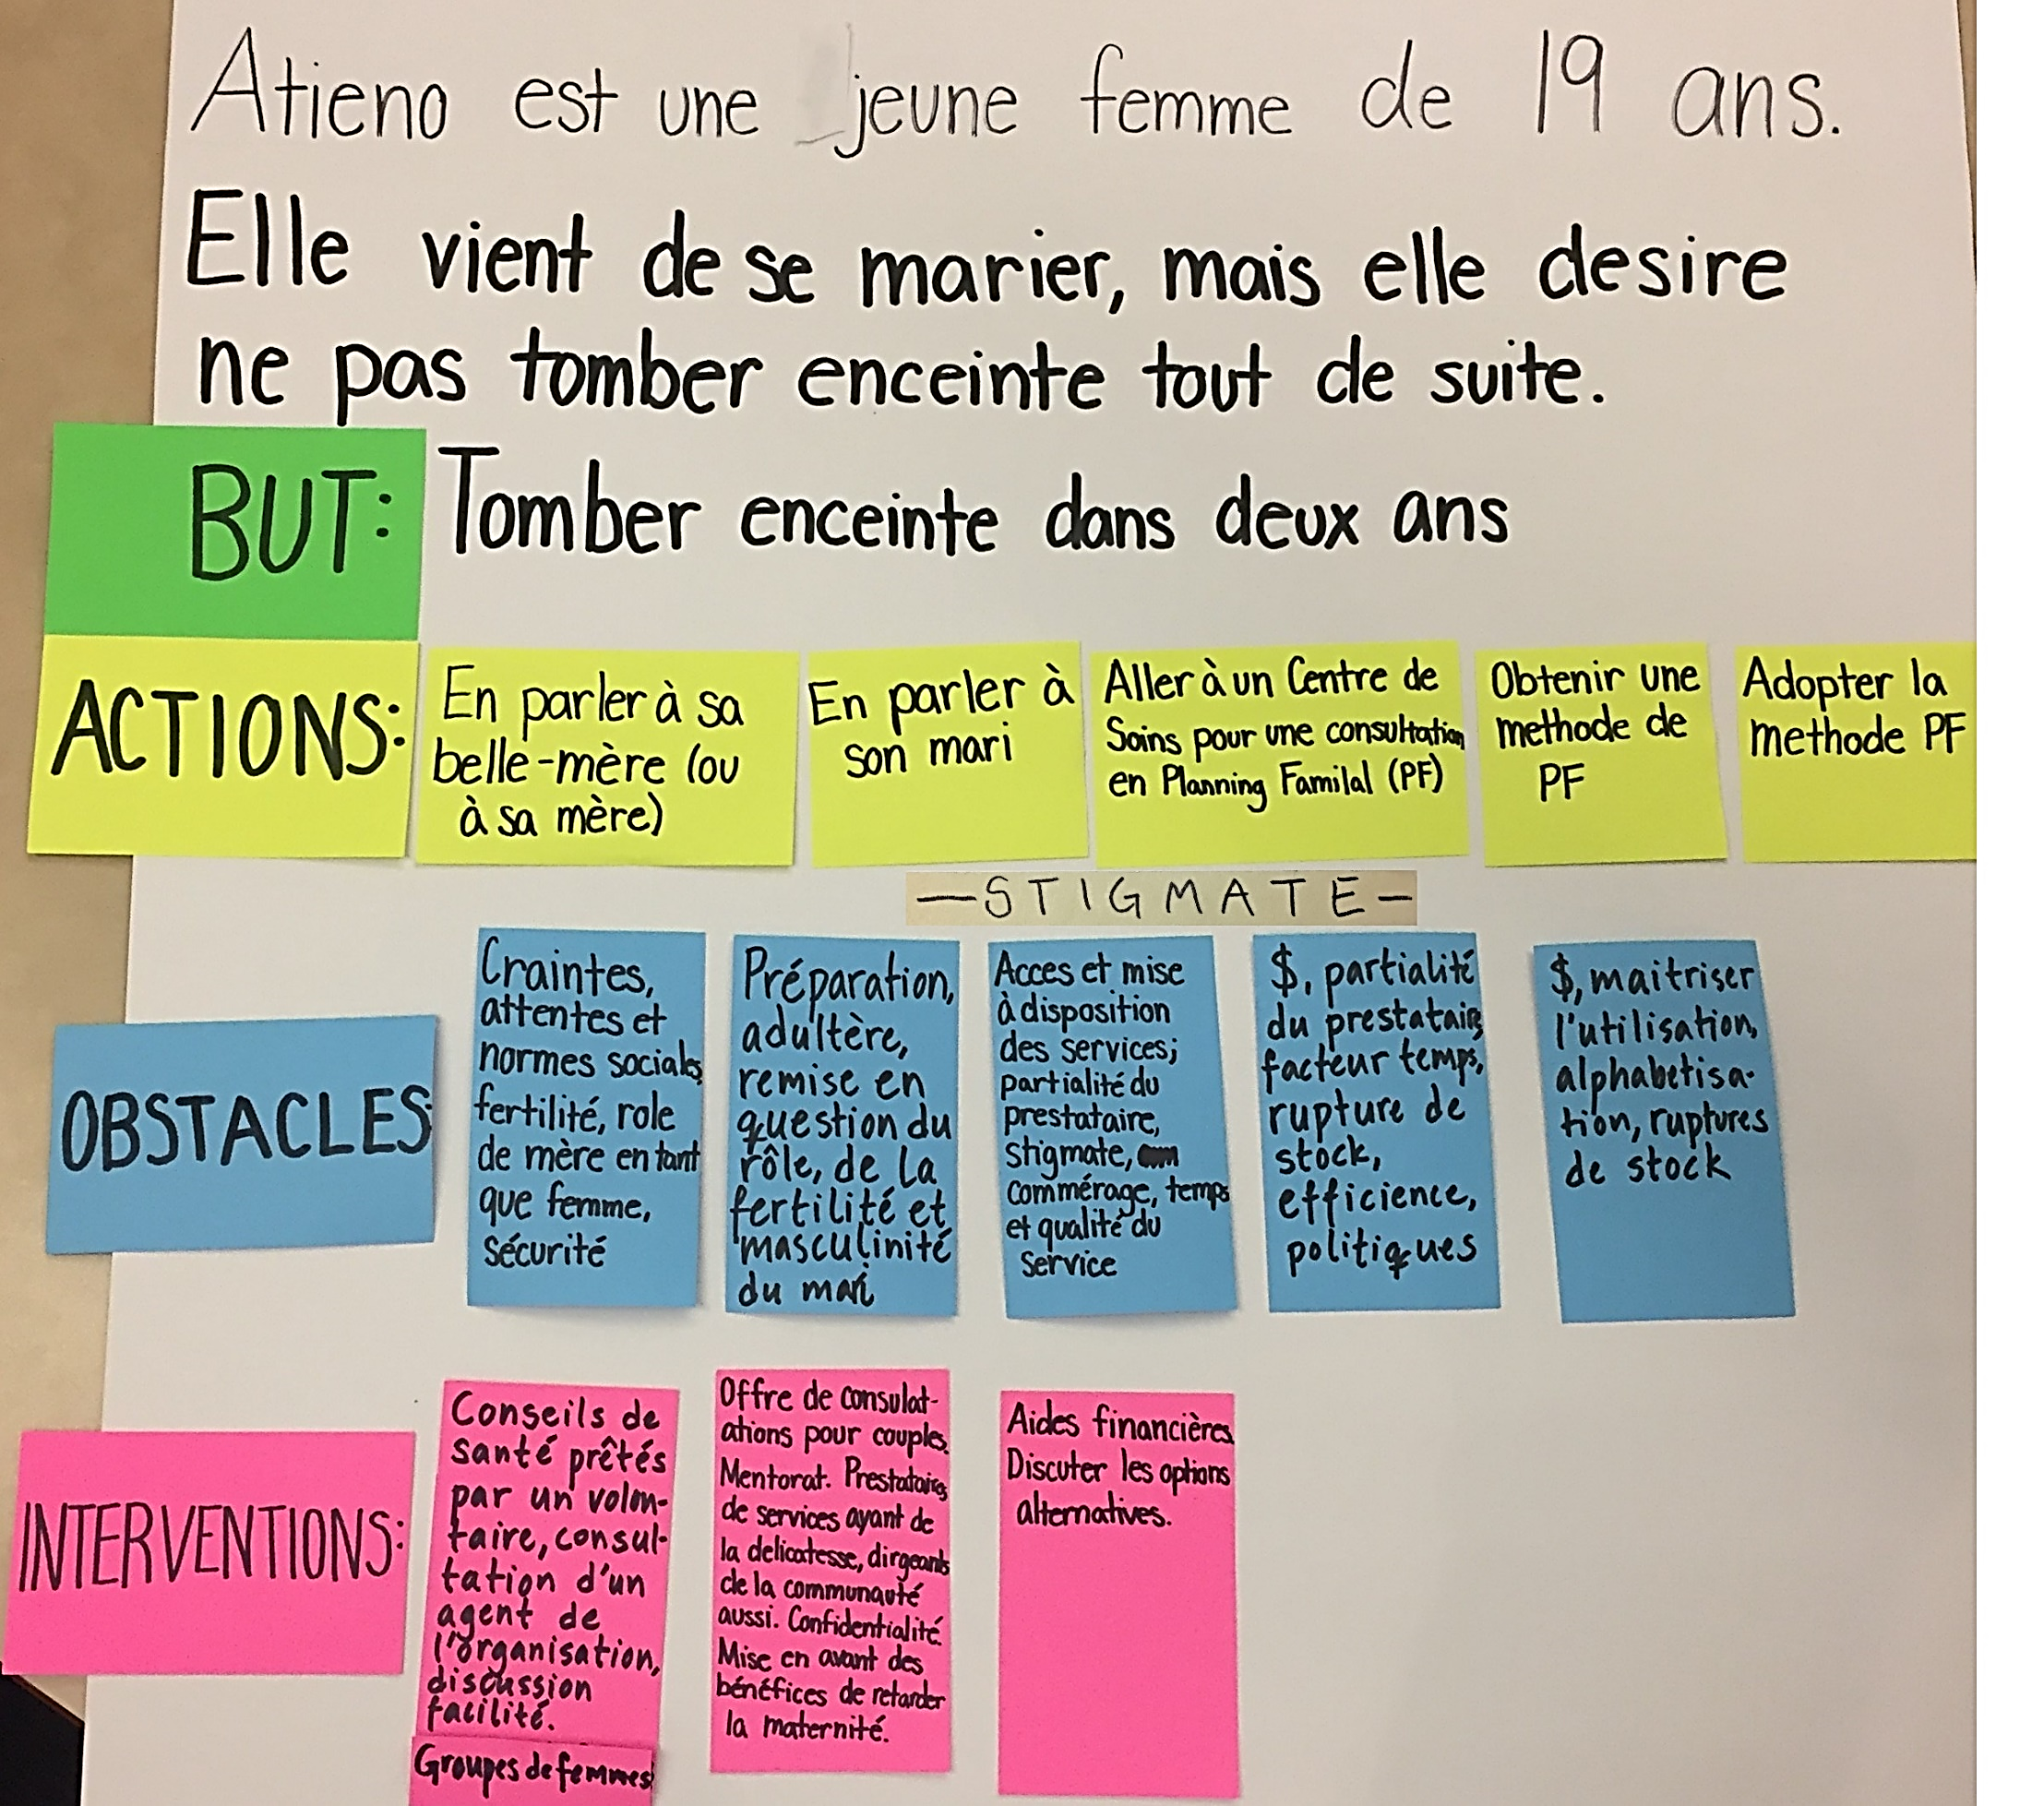 Atieno est une jeune femme de 19 ans.
Elle vient de se marier, mais elle desire
ne pas tomber enceinte tout de suite.
BUT: Tomber enceinte dans deux ans
ACTIONS:
En parler à sa
belle-mère (ou
à sa mère)
En parler à
son mari
Aller à un Centre de
Soins pour une consultation
en Planning Familal (PF)
Obtenir une
methode de
PF
Adopter la
methode PF
—STIGMATE—
OBSTACLES:
Craintes,
attentes et
normes sociales,
fertilité, role
de mère en tant
que femme,
sécurité
Préparation,
adultère,
remise en
question du
rôle, de la
fertilité et
masculinité
du mari
Acces et mise
à disposition
des services;
partialité du
prestataire,
stigmate,
commérage, temps
et qualité du
service
$, partialité
du prestataire,
facteur temps,
rupture de
stock,
efficience,
politiques
$, maitriser
l'utilisation,
alphabetisa-
tion, ruptures
de stock
INTERVENTIONS:
Conseils de
santé prêtés
par un volon-
taire, consul-
tation d'un
agent de
l'organisation,
discussion
facilité.
Groupes de femmes
Offre de consulat-
ations pour couples.
Mentorat. Prestataires
de services ayant de
la delicatesse, dirgeants
de la communauté
aussi. Confidentialité.
Mise en avant des
bénéfices de retarder
la maternité.
Aides financières
Discuter les options
alternatives.